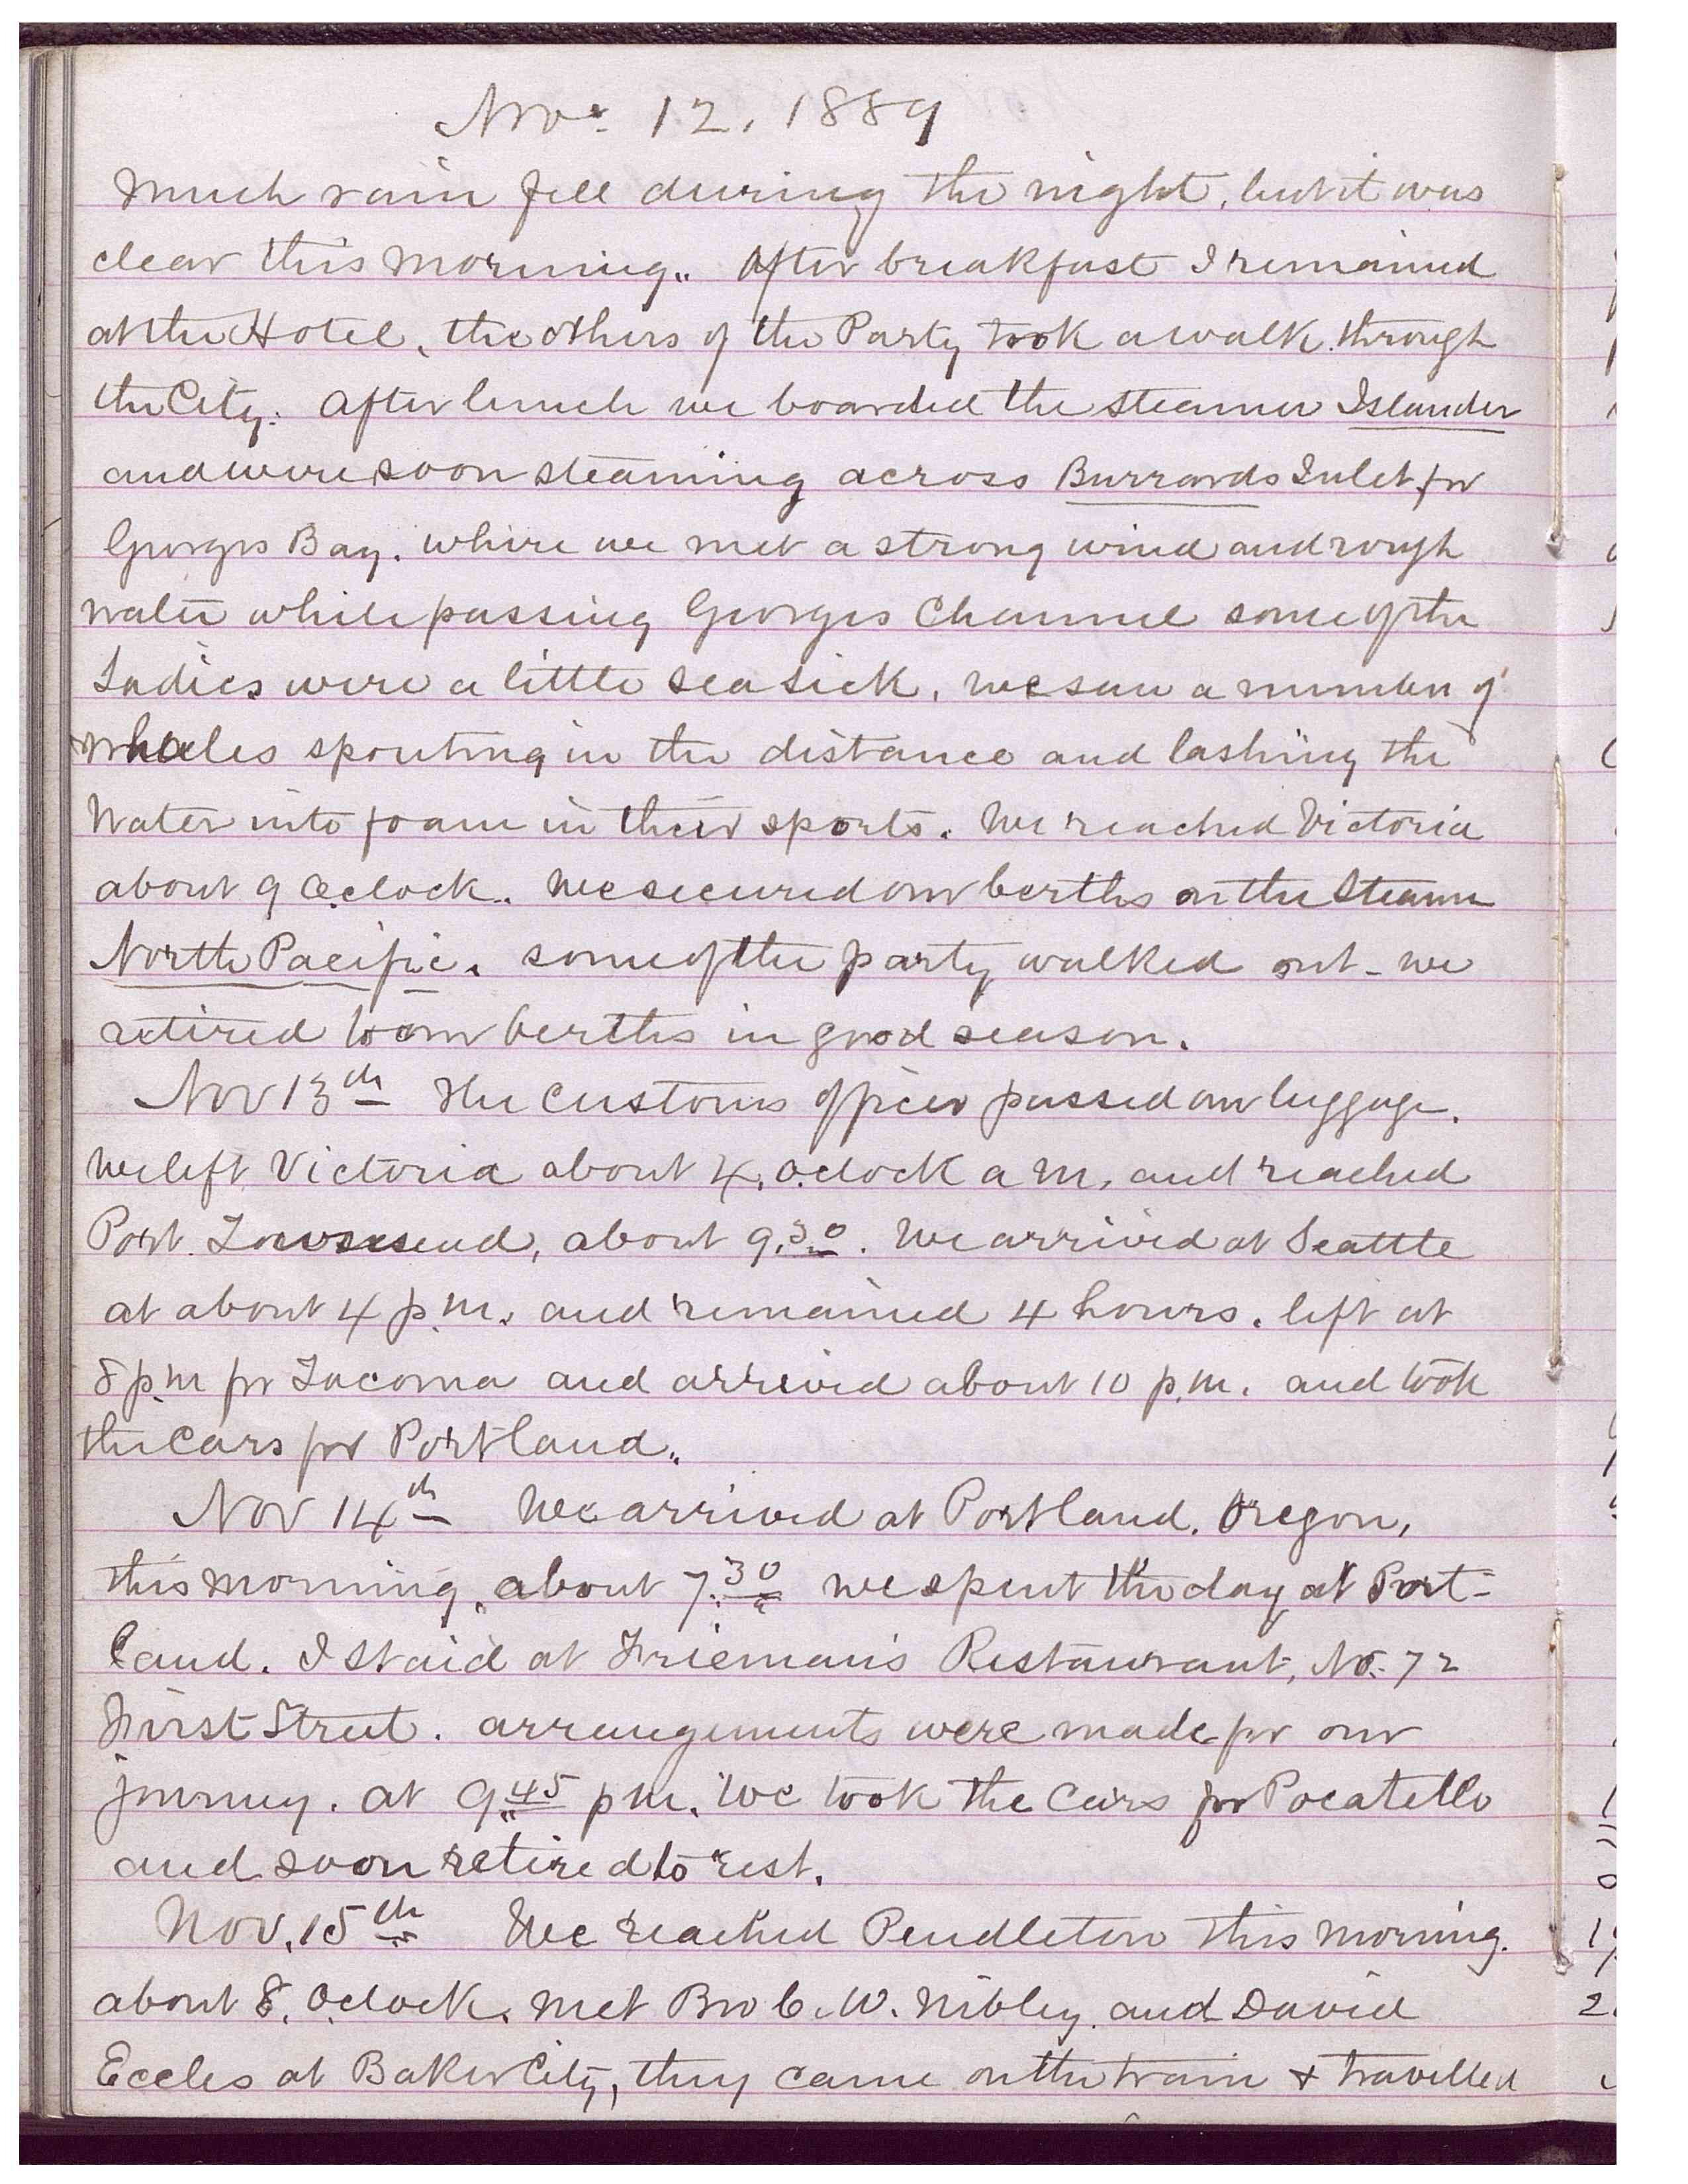 Nov. 12, 1889
Much rain fell during the night, but it was
clear this morning. After breakfast I remained
at the Hotel, the others of the Party took a walk through
the City. After lunch we boarded the steamer Islander
and were soon steaming across Burrards Inlet for
Georges Bay. where we met a strong wind and rough
water while passing Georges Channel some of the
Ladies were a little sea sick, we saw a number of
whales spouting in the distance and lashing the
Water into foam in their sports. We reached Victoria
about 9 Oclock. We secured our berths on the Steamer
North Pacific. some of the party walked out - we
retired to our berths in good season.
Nov 13th The Customs officer passed our luggage.
We left Victoria about 4, Oclock a m, and reached
Port Townsend, about 9.30. We arrived at Seattle
at about 4 p.m. and remained 4 hours. left at
8 p.m for Tacoma and arrived about 10 p.m. and took
the Cars for Portland.
Nov 14th We arrived at Portland, Oregon,
this morning, about 7.30 we spent the day at Port-
land. I staid at Frieman's Restaurant, No. 72
First Street. arrangements were made for our
journey. at 9.45 p m. We took the Cars for Pocatello
and soon retired to rest.
Nov. 15th We reached Pendleton this morning.
about 8, Oclock. met Bro C. W. Nibley and David
Eccles at Baker City, they came on the train & travelled